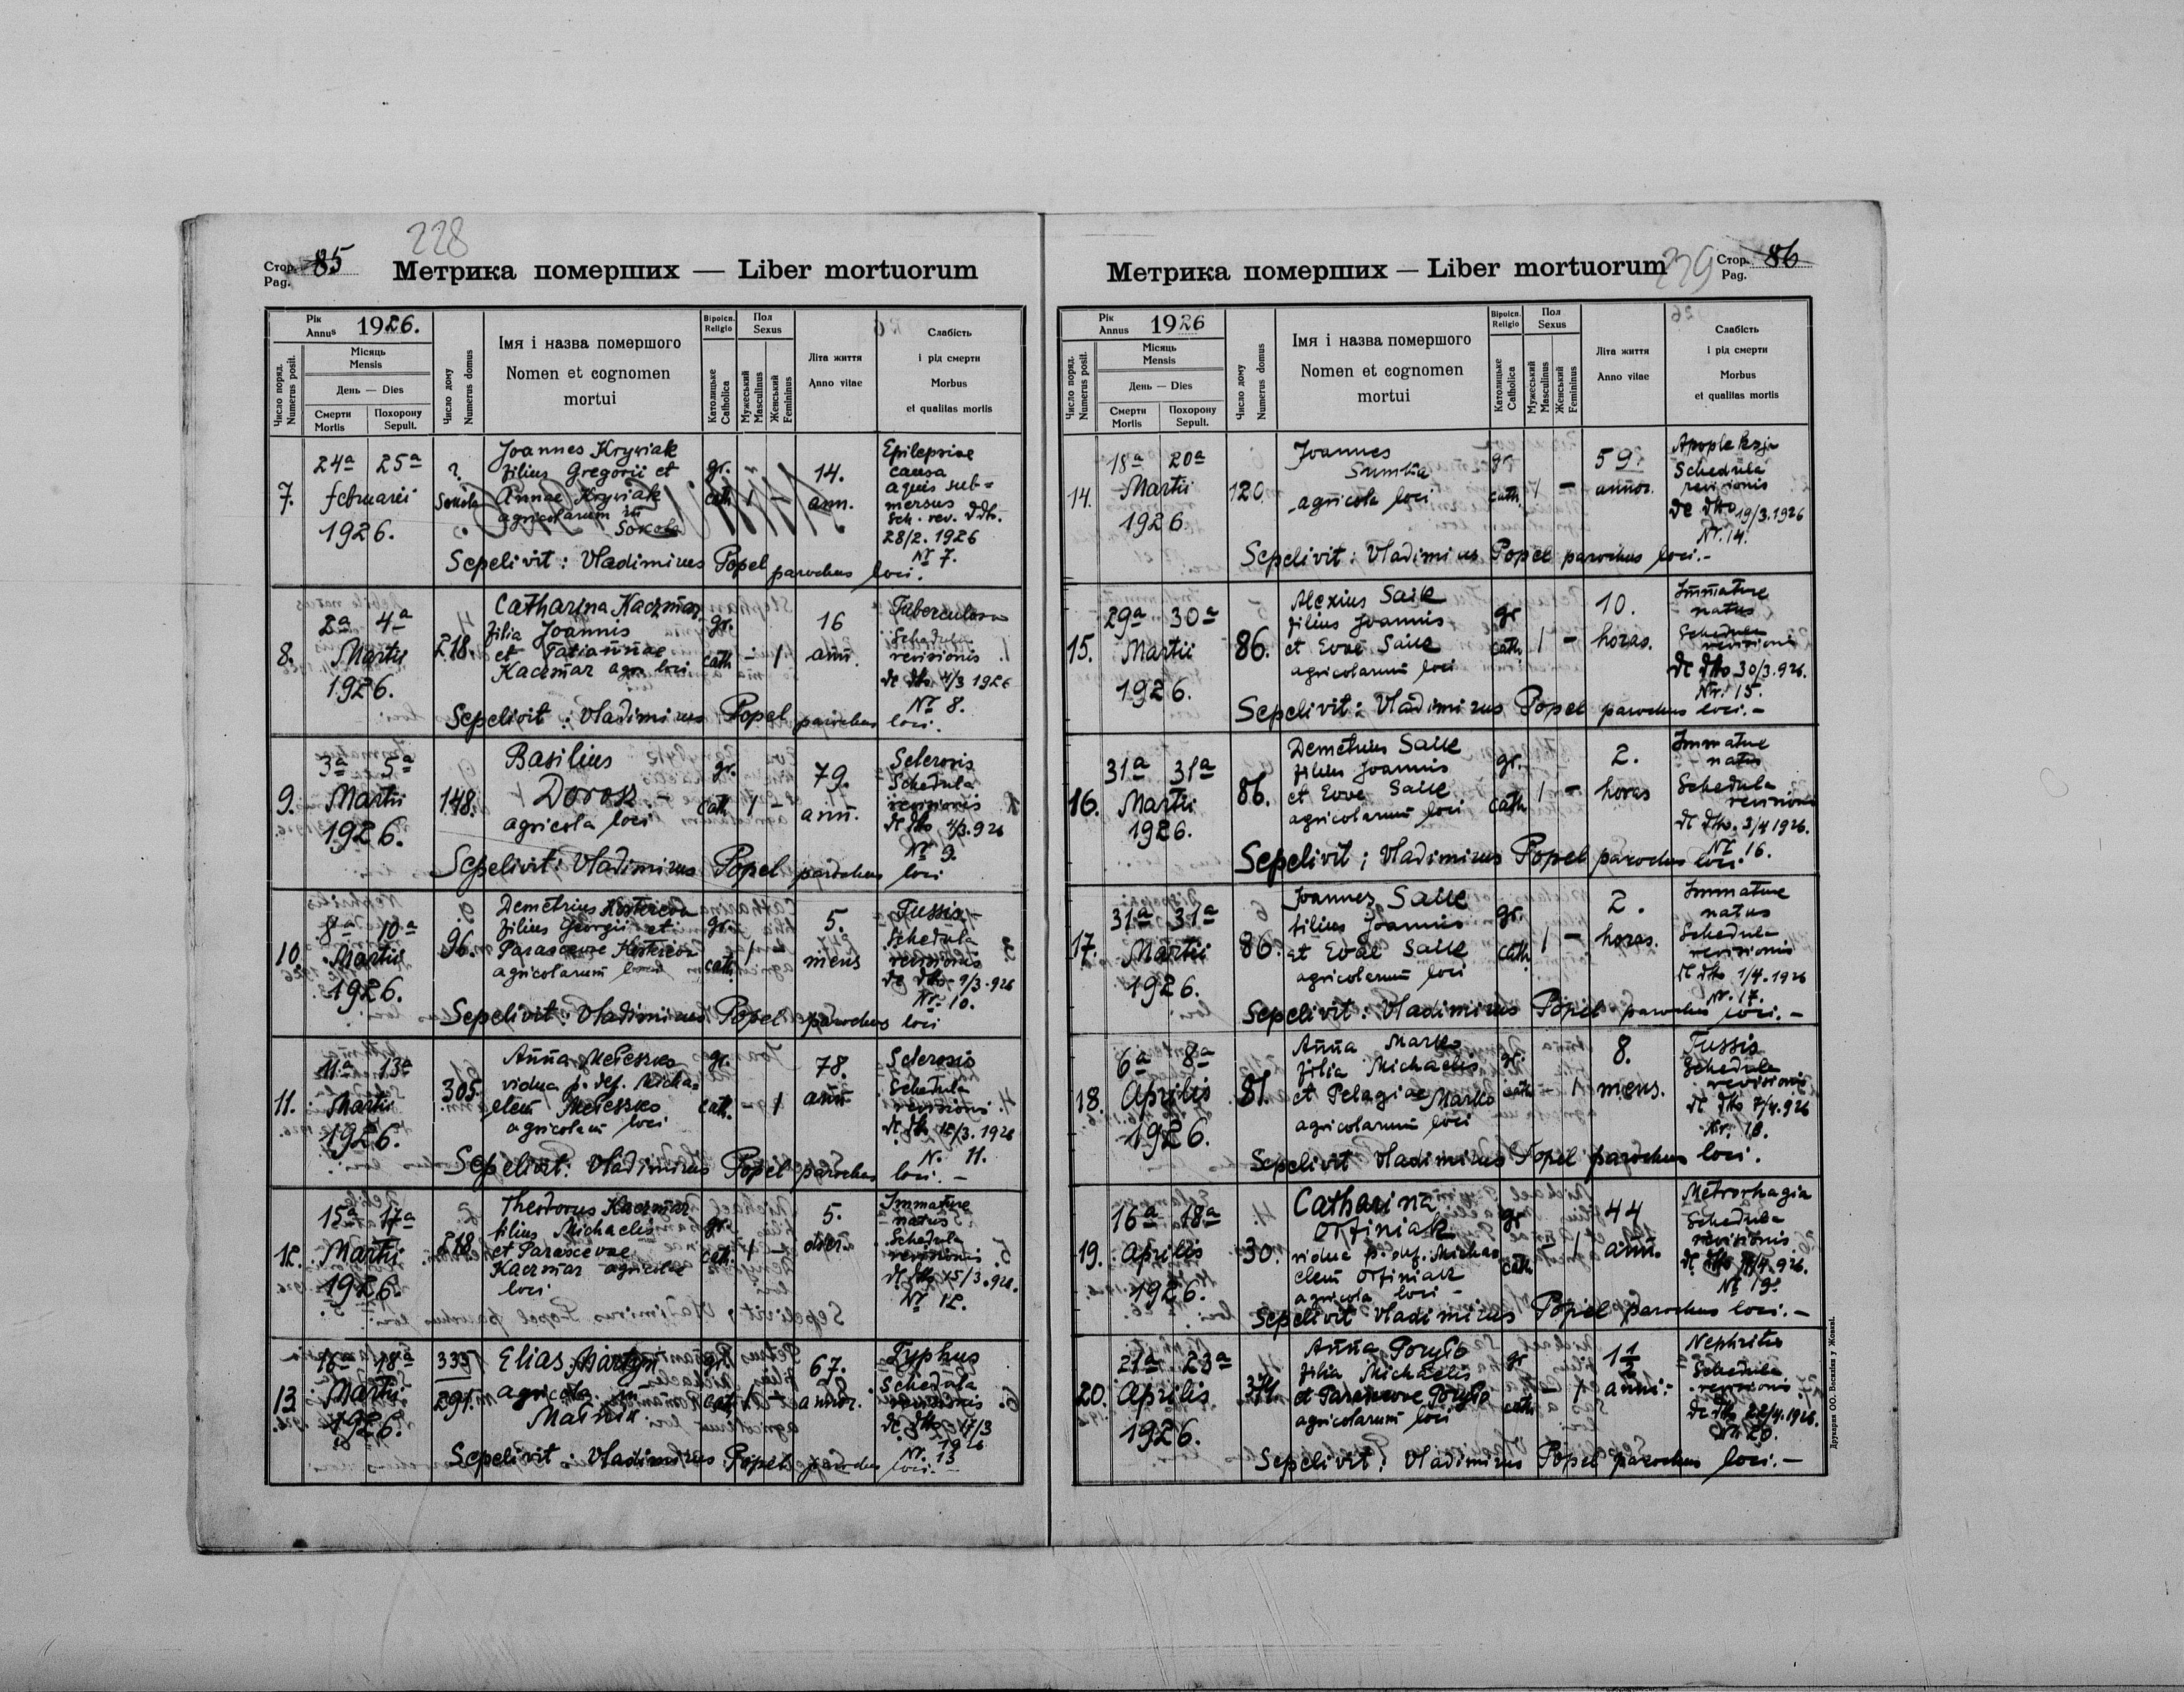 228
Стор. 85
Pag.
Метрика померших — Liber mortuorum
Рік
Annus 1926.
Місяць
Mensis
День — Dies
Смерти
Mortis
Похорону
Sepult.
Число поряд.
Numerus posit.
Число дому
Numerus domus
Імя і назва помершого
Nomen et cognomen
mortui
Віроісп.
Religio
Католицьке
Catholica
Пол
Sexus
Мужеський
Masculinus
Женський
Femininus
Літа життя
Anno vitae
Слабість
і рід смерти
Morbus
et qualitas mortis
7.
24a 25a
februarii
1926.
?
Sokola
Joannes Krywiak
filius Gregorii et
Annae Krywiak
agricolarum in
Sokola
gr.
cath. 1 —
14.
ann.
Epilepsiae
causa
aquis sub=
mersus
Sch. rev. ddto.
28/2. 1926
Nr 7.
Sepelivit: Vladimirus Popel parochus loci.
8.
2a 4a
Martii
1926.
218.
Catharina Kaczmar
filia Joannis
et Tatiannae
Kaczmar agr. loci
gr.
cath — 1
16
ann.
Tuberculosa
Schedula
revisionis
de dto 4/3 1926
Nr 8.
Sepelivit: Vladimirus Popel parochus loci.
9.
3a 5a
Martii
1926.
148.
Basilius
Dorosz.—
agricola loci
gr.
cath 1 —
79.
ann.
Sclerosis
Schedula
revisionis
de dto 4/3.926
Nr 9.
Sepelivit: Vladimirus Popel parochus loci
10.
8a 10a
Martii
1926.
96.
Demetrius
filius Georgii et
Parascevae
agricolarum loci
gr.
cath. 1 —
5.
mens
Tussis—
Schedula
revisionis
de dto 9/3.926
Nr. 10.
Sepelivit: Vladimirus Popel parochus loci
11.
11a 13a
Martii
1926.
305.
Anna Meleszko
vidua p. def. Micha=
elem Meleszko
agricolam loci
gr.
cath. — 1
78.
ann.
Sclerosis
Schedula
revisionis
de dto 12/3. 1926
N. 11.
Sepelivit: Vladimirus Popel parochus loci.—
12.
15a 17a
Martii
1926.
218.
Theodorus Kaczmar
filius Michaelis
et Parascevae
Kaczmar agricolae
loci
gr.
cath. 1 —
5.
dier.
Immature
natus
Schedula
revisionis
de dto 15/3.926.
Nr 12.
13
16a 18a
Martii
1926.
335
291.
Elias Martyn
agricola in
gr.
cath 1 —
67.
annor.
Typhus
Schedula
revisionis
de dto 17/3
1926
Nr. 13
Sepelivit: Vladimirus Popel parochus loci.—
Метрика померших — Liber mortuorum
Стор. 86
Pag.
Рік
Annus 1926
Місяць
Mensis
День — Dies
Смерти
Mortis
Похорону
Sepult.
Число поряд.
Numerus posit.
Число дому
Numerus domus
Імя і назва помершого
Nomen et cognomen
mortui
Віроісп.
Religio
Католицьке
Catholica
Пол
Sexus
Мужеський
Masculinus
Женський
Femininus
Літа життя
Anno vitae
Слабість
і рід смерти
Morbus
et qualitas mortis
14.
18a 20a
Martii
1926.
120.
Joannes
agricola loci
gr.
cath. 1 —
59.
annor.
Apopleksja
Schedula
revisionis
de dto 19/3.1926
Nr. 14.
Sepelivit: Vladimirus Popel parochus loci.—
15.
29a 30a
Martii
1926.
86.
Alexius Saik
filius Joannis
et Evae
agricolarum loci
gr
cath. 1 —
10.
horas.
Immature
natus
Schedula
revisionis
de dto 30/3.926.
Nr. 15.
Sepelivit: Vladimirus Popel parochus loci.—
16.
31a 31a
Martii
1926.
86.
Demetrius
filius Joannis
et Evae
agricolarum loci
gr.
cath 1 —
2.
horas
Immature
natus
Schedula
revisionis
de dto. 3/4 1926.
Nr 16.
Sepelivit: Vladimirus Popel parochus loci.
17.
31a 31a
Martii
1926.
86.
Joannes
filius Joannis
et Evae
agricolarum loci
gr.
cath. 1 —
2.
horas.
Immature
natus
Schedula
revisionis
de dto 1/4.1926
Nr. 17.
Sepelivit: Vladimirus Popel parochus loci.—
18.
6a 8a
Aprilis
1926.
81.
Anna Marko
filia Michaelis
et Pelagiae Marko
agricolarum loci
gr.
cath — 1
8.
mens.
Tussis
Schedula
revisionis
de dto 7/4.926
Nr. 18.
Sepelivit Vladimirus Popel parochus loci.
19.
16a 18a
Aprilis
1926.
30.
Catharina
Orfiniak
vidua p. def. Micha
elem Orfiniak
agricola loci —
gr
cath. — 1
44
ann.
Metrorhagia
Schedula
revisionis
Nr 19.
Sepelivit Vladimirus Popel parochus loci.—
20.
21a 23a
Aprilis
1926.
Anna Poryło
filia Michaelis
et Parascevae Poryło
agricolarum loci
gr
cath — 1
1 1/2
anni.
Nephritis
Schedula
revisionis
de dto 22/4.1926.
Nr. 20.
Sepelivit: Vladimirus Popel parochus loci.—
Друкарня ОО. Василіян у Жовкві.